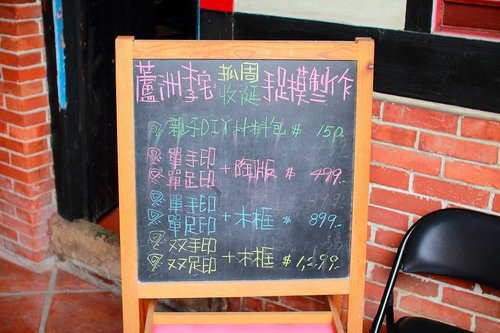 蘆洲李宅 抓周 手足模製作
收涎
親子DIY材料包 $ 150.
單手印
單足印 + 陶版 $ 499.-
單手印
單足印 + 木框 $ 899.-
双手印
双足印 + 木框 $ 1,299.-